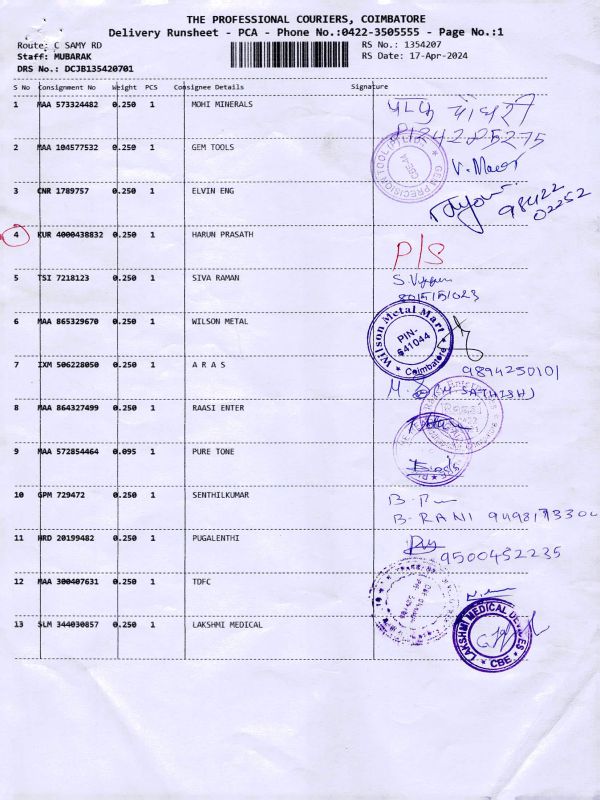 THE PROFESSIONAL COURIERS, COIMBATORE
Delivery Runsheet - PCA - Phone No.:0422-3505555 - Page No.:1
Route: C SAMY RD
RS No.: 1354207
Staff: MUBARAK
RS Date: 17-Apr-2024
DRS No.: DCJB135420701
S No Consignment No Weight PCS Consignee Details Signature
1 MAA 573324482 0.250 1 MOHI MINERALS
2 MAA 104577532 0.250 1 GEM TOOLS
3 CNR 1789757 0.250 1 ELVIN ENG
98422
02252
4 KUR 4000438832 0.250 1 HARUN PRASATH P/S
5 TSI 7218123 0.250 1 SIVA RAMAN
6 MAA 865329670 0.250 1 WILSON METAL
Wilson Metal Mart
PIN-
641044
Coimbatore
7 IXM 506228050 0.250 1 A R A S
9894250101
(M. SATHISH)
8 MAA 864327499 0.250 1 RAASI ENTER
9 MAA 572854464 0.095 1 PURE TONE
10 GPM 729472 0.250 1 SENTHILKUMAR
B. RANI
11 HRD 20199482 0.250 1 PUGALENTHI
9500452235
12 MAA 300407631 0.250 1 TDFC
13 SLM 344030857 0.250 1 LAKSHMI MEDICAL
LAKSHMI MEDICAL DEVICES
CBE